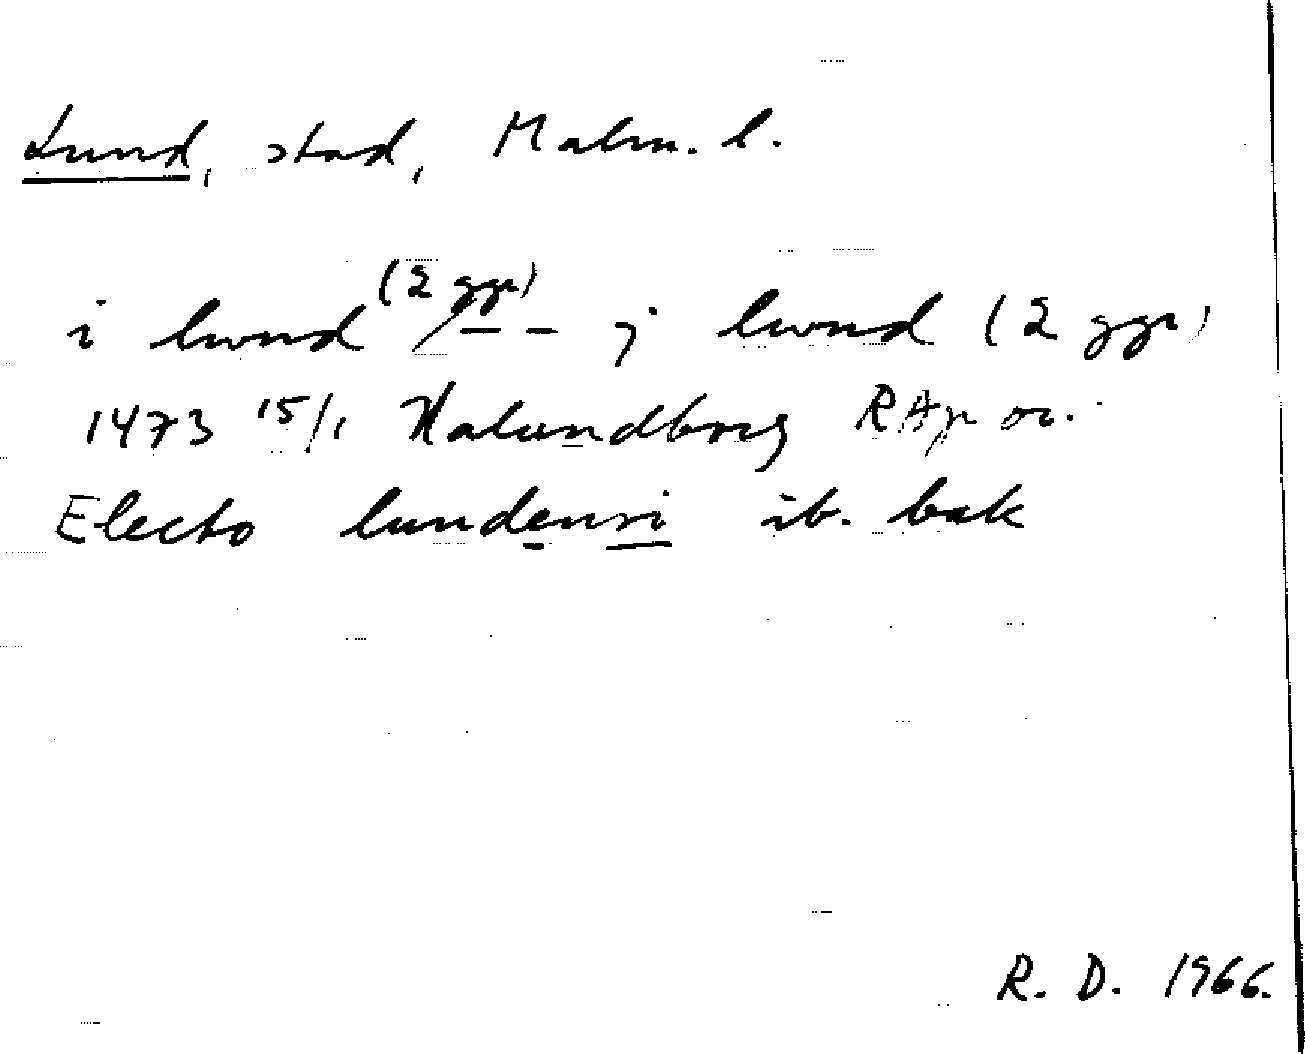 Lund, stad, Malm. l.
i lwnd (2 ggr) – – j lwnd (2 ggr)
1473 15/1 Kalundborg RAp or.
Electo lundensi ib. bak
R. D. 1966.